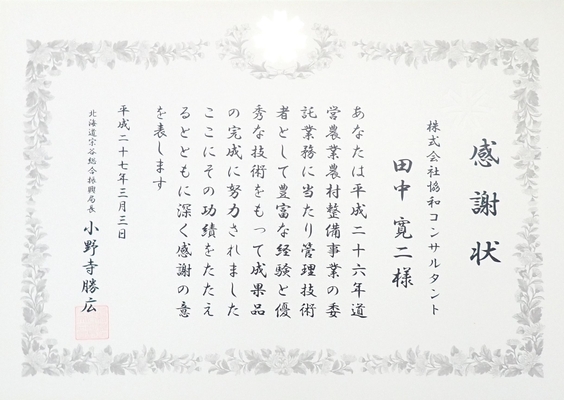 感謝状
株式会社協和コンサルタント
田中寛二様
あなたは平成二十六年道
営農業農村整備事業の委
託業務に当たり管理技術
者として豊富な経験と優
秀な技術をもって成果品
の完成に努力されました
ここにその功績をたたえ
るとともに深く感謝の意
を表します
平成二十七年三月三日
北海道宗谷総合振興局長 小野寺勝広